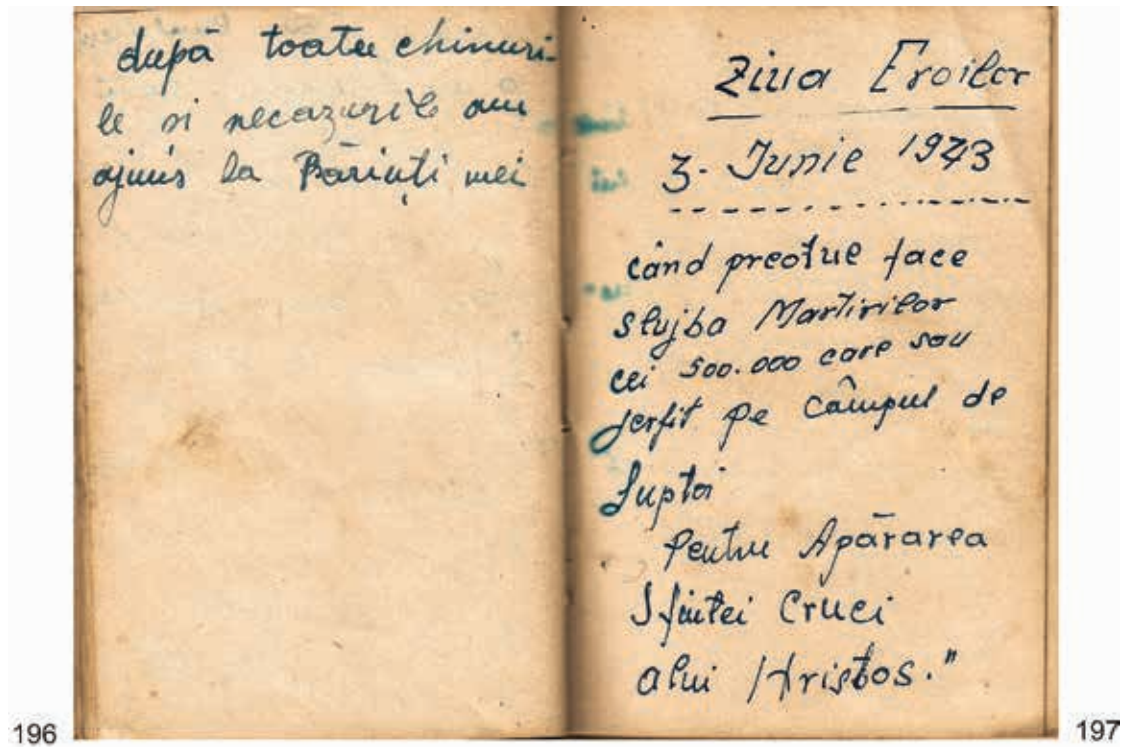 după toate chinuri-
le si necazurile am
ajuns la Părinți mei
196
Ziua Eroilor
3. Iunie 1973
când preotul face
slujba Martirilor
cei 500.000 care sau
jerfit pe câmpul de
luptă
pentru Apărarea
Sfintei Cruci
alui Hristos."
197